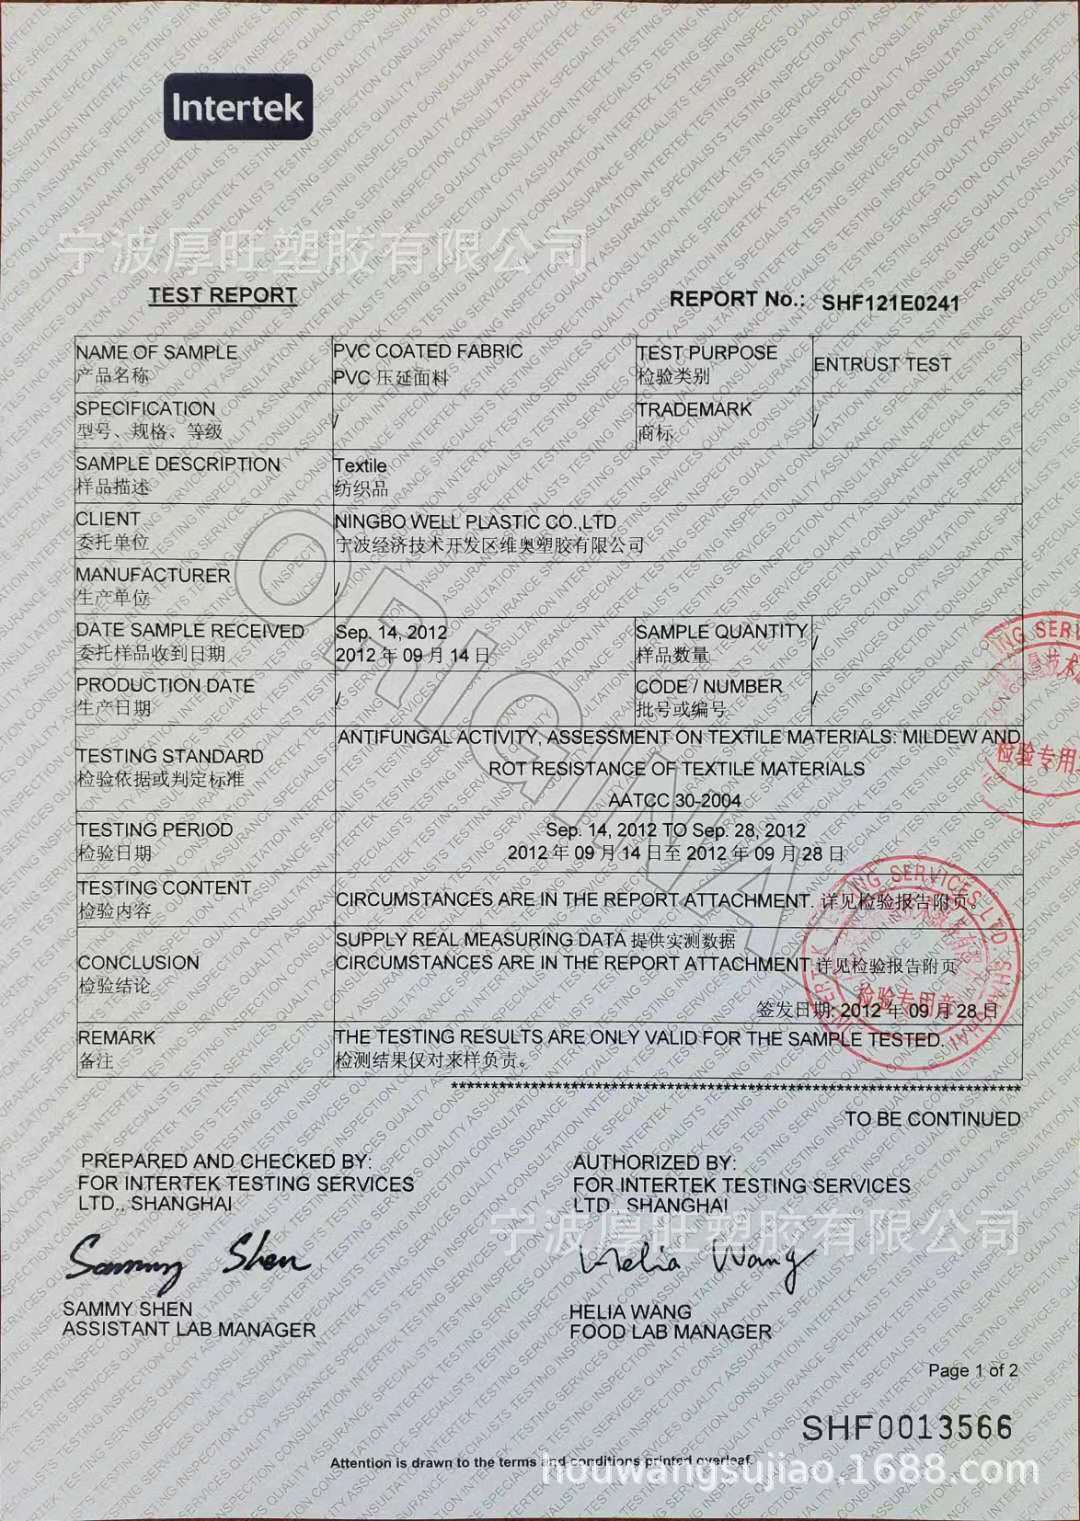 Intertek
宁波厚旺塑胶有限公司
TEST REPORT
REPORT No.: SHF121E0241
NAME OF SAMPLE PVC COATED FABRIC TEST PURPOSE ENTRUST TEST
产品名称 PVC 压延面料 检验类别
SPECIFICATION / TRADEMARK /
型号、规格、等级 商标
SAMPLE DESCRIPTION Textile
样品描述 纺织品
CLIENT NINGBO WELL PLASTIC CO.,LTD
委托单位 宁波经济技术开发区维奥塑胶有限公司
MANUFACTURER /
生产单位
DATE SAMPLE RECEIVED Sep. 14, 2012 SAMPLE QUANTITY /
委托样品收到日期 2012 年 09 月 14 日 样品数量
PRODUCTION DATE / CODE / NUMBER /
生产日期 批号或编号
ANTIFUNGAL ACTIVITY, ASSESSMENT ON TEXTILE MATERIALS: MILDEW AND
TESTING STANDARD ROT RESISTANCE OF TEXTILE MATERIALS
检验依据或判定标准 AATCC 30-2004
TESTING PERIOD Sep. 14, 2012 TO Sep. 28, 2012
检验日期 2012 年 09 月 14 日至 2012 年 09 月 28 日
TESTING CONTENT CIRCUMSTANCES ARE IN THE REPORT ATTACHMENT. 详见检验报告附页。
检验内容
SUPPLY REAL MEASURING DATA 提供实测数据
CONCLUSION CIRCUMSTANCES ARE IN THE REPORT ATTACHMENT 详见检验报告附页
检验结论
签发日期: 2012 年 09 月 28 日
REMARK THE TESTING RESULTS ARE ONLY VALID FOR THE SAMPLE TESTED.
备注 检测结果仅对来样负责。
ORIGINAL
检验专用章
检验专用
TO BE CONTINUED
PREPARED AND CHECKED BY: AUTHORIZED BY:
FOR INTERTEK TESTING SERVICES FOR INTERTEK TESTING SERVICES
LTD., SHANGHAI LTD., SHANGHAI
宁波厚旺塑胶有限公司
Sammy Shen Helia Wang
SAMMY SHEN HELIA WANG
ASSISTANT LAB MANAGER FOOD LAB MANAGER
Page 1 of 2
SHF0013566
Attention is drawn to the terms and conditions printed overleaf.
houwangsujiao.1688.com